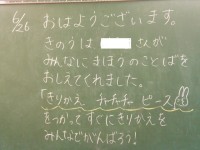 6/26
おはようございます。
きのうは さんが
みんなにまほうのことばを
おしえてくれました。
「きりかえ チャチャチャ ピース」
をつかってすぐにきりかえを
みんなでがんばろう!